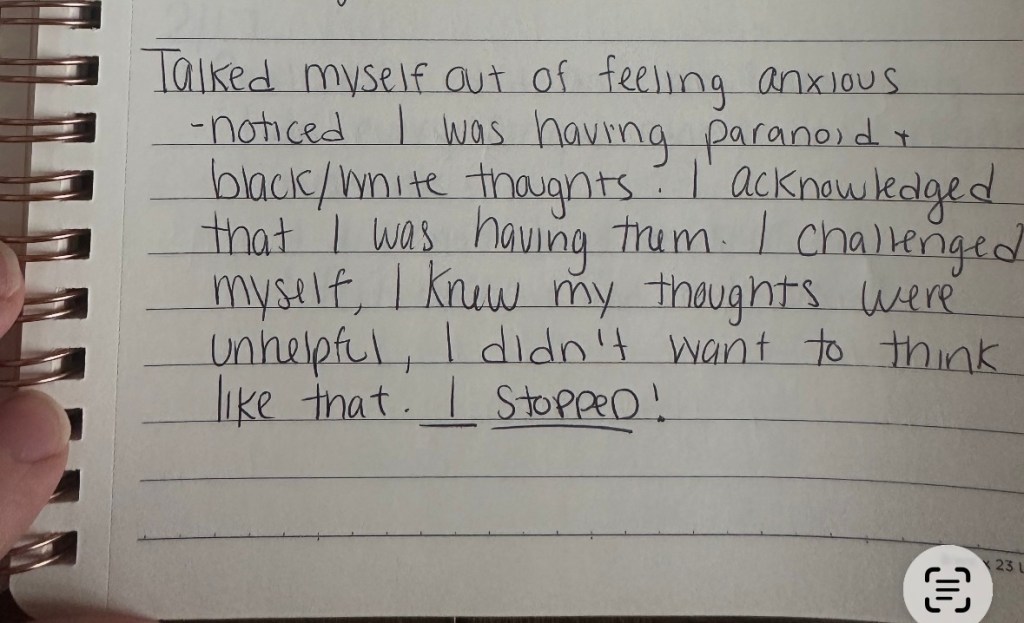 Talked myself out of feeling anxious
-noticed I was having paranoid +
black/white thoughts. I acknowledged
that I was having them. I challenged
myself, I knew my thoughts were
unhelpful, I didn't want to think
like that. I STOPPED!
x 23 L